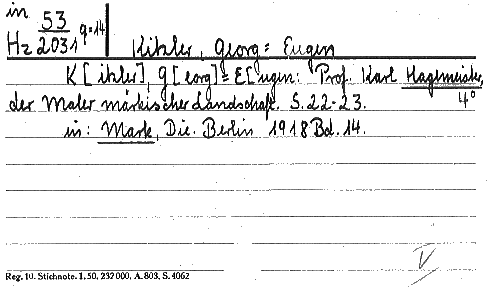 in 53
Hz 2031 q=14
Kitzler, Georg= Eugen
K[itzler], G[eorg]=E[ugen: Prof. Karl Hagemeister,
der Maler märkischer Landschaft. S.22-23. 4°
in: Mark, Die. Berlin 1918 Bd. 14.
V
Reg. 10. Stichnote. 1, 50, 232 000, A. 803, S. 4062